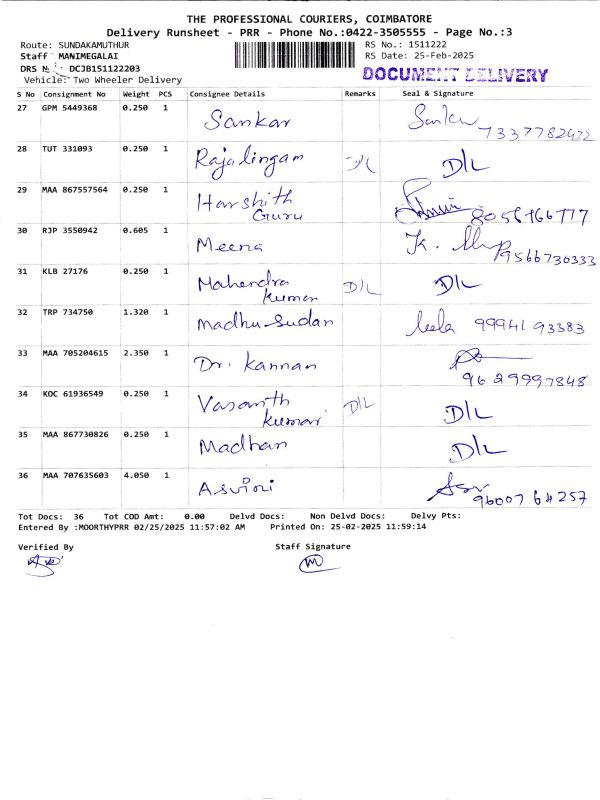 THE PROFESSIONAL COURIERS, COIMBATORE
Delivery Runsheet - PRR - Phone No.:0422-3505555 - Page No.:3
Route: SUNDAKAMUTHUR
RS No.: 1511222
Staff MANIMEGALAI
RS Date: 25-Feb-2025
DRS No: DCJB151122203
DOCUMENT DELIVERY
Vehicle: Two Wheeler Delivery
S No Consignment No Weight PCS Consignee Details Remarks Seal & Signature
27 GPM 5449368 0.250 1 Sankar 7337782472
28 TUT 331093 0.250 1 Rajalingam D/L D/L
29 MAA 867557564 0.250 1 Harshith
Guru
30 RJP 3550942 0.605 1 Meena K. 9566730333
31 KLB 27176 0.250 1 Mahendra D/L D/L
kumar
32 TRP 734750 1.320 1 Madhu Sudan leela 99941 93383
33 MAA 705204615 2.350 1 Dr. Kannan
9629997848
34 KOC 61936549 0.250 1 Vasanth D/L D/L
kumar
35 MAA 867730826 0.250 1 Madhan D/L
36 MAA 707635603 4.050 1 Asvini 96007 64257
Tot Docs: 36 Tot COD Amt: 0.00 Delvd Docs: Non Delvd Docs: Delvy Pts:
Entered By :MOORTHYPRR 02/25/2025 11:57:02 AM Printed On: 25-02-2025 11:59:14
Verified By Staff Signature